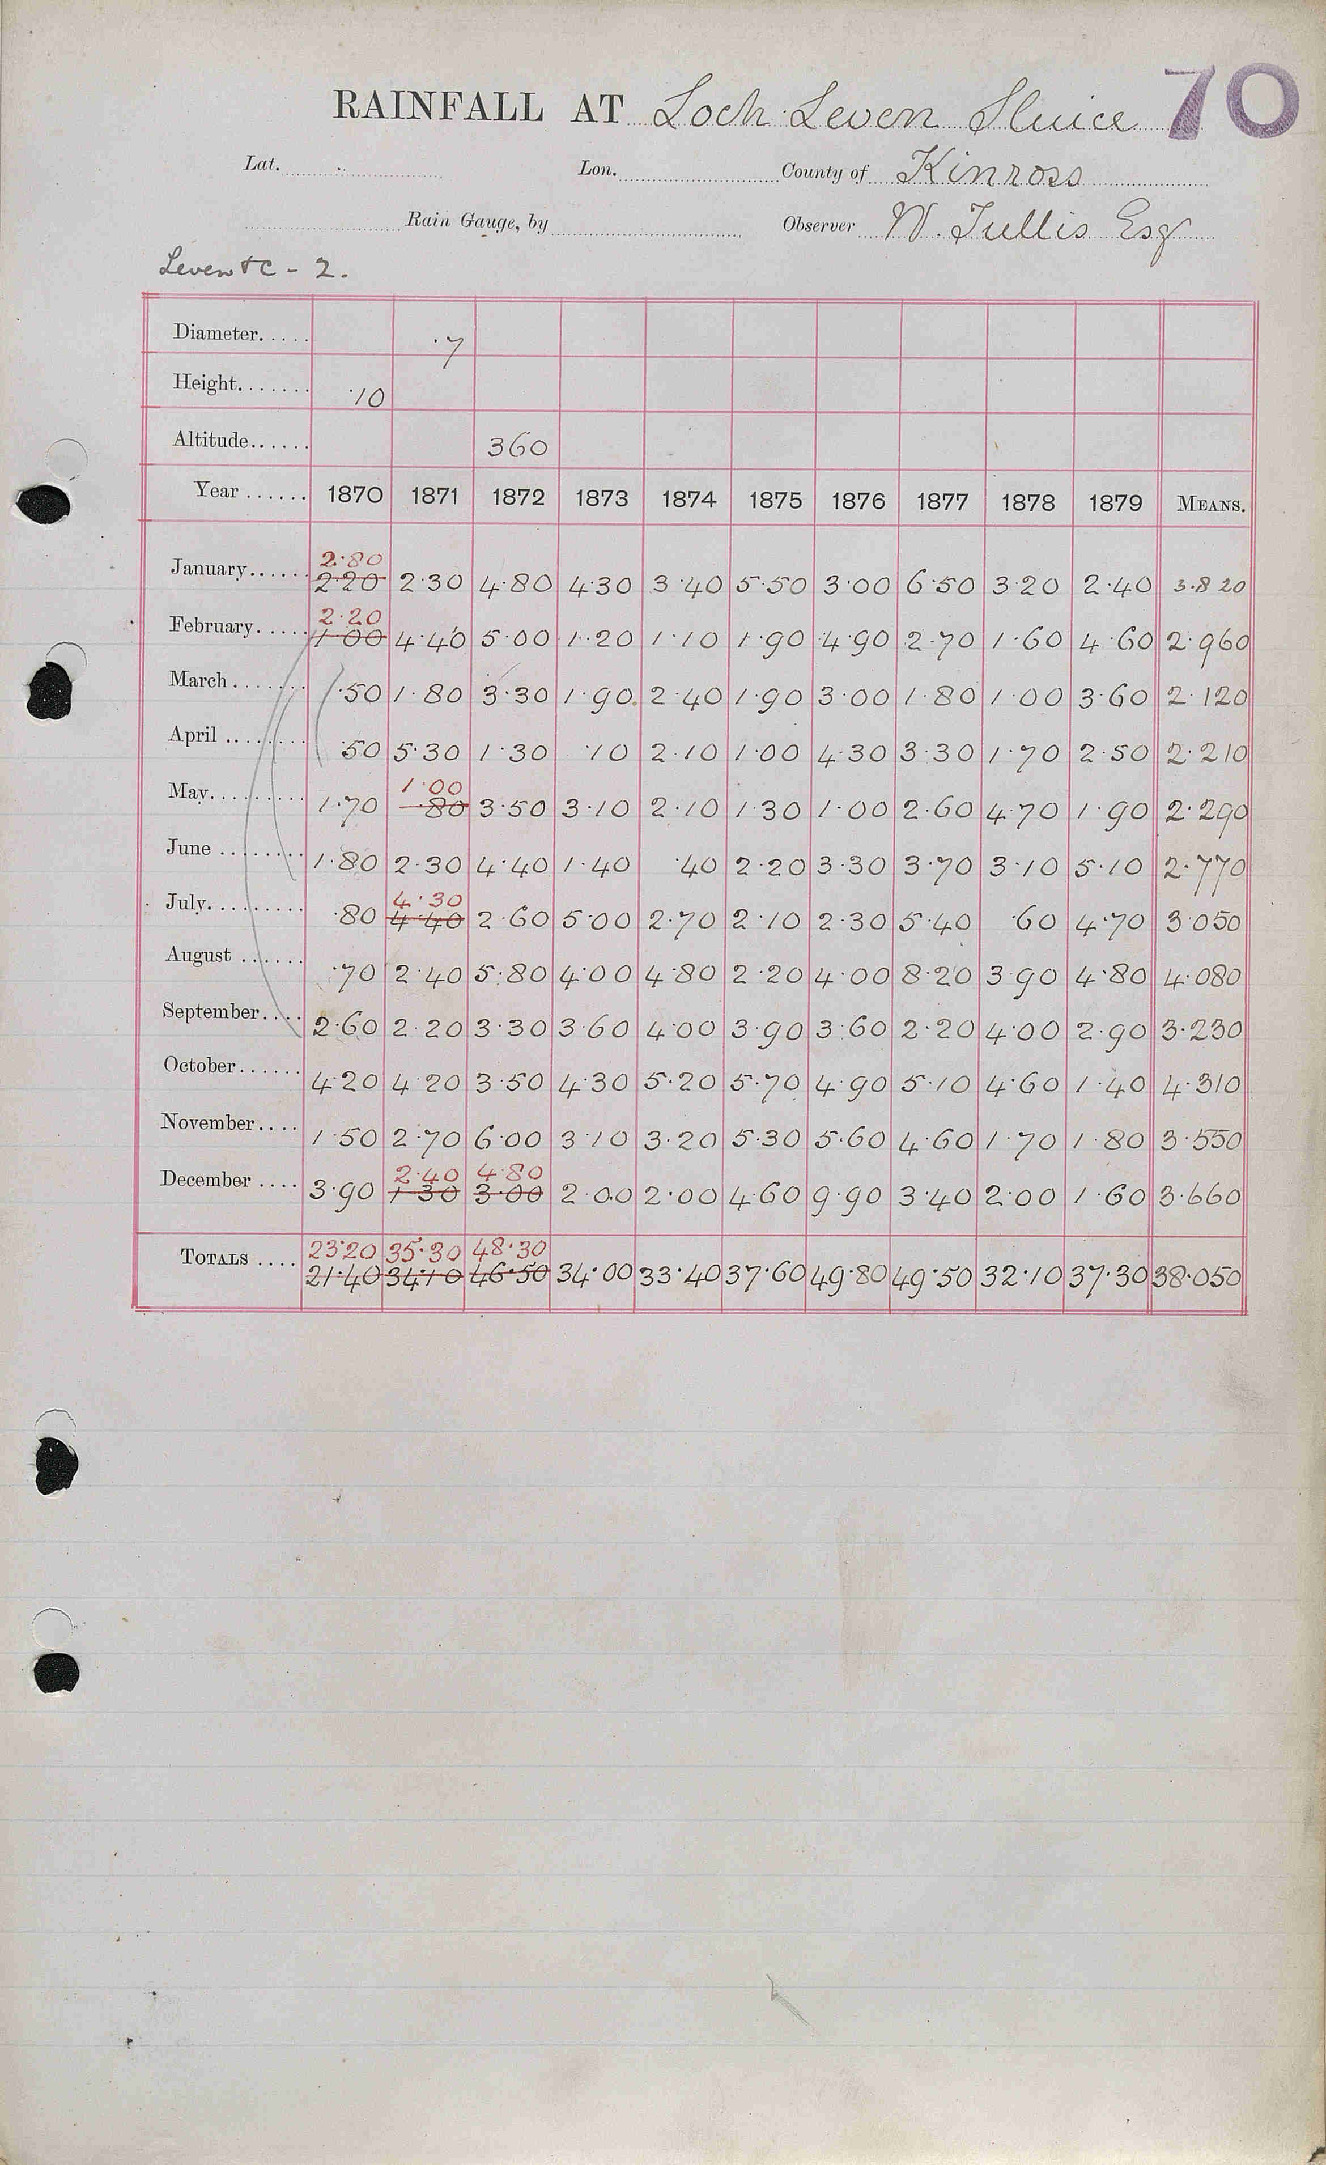 RAINFALL AT Loch Leven Sluice 70
Lat. Lon. County of Kinross
Rain Gauge, by Observer W. Tullis Esq
Leven & C - 2.
Diameter..... ·7
Height....... ·10
Altitude...... 360
Year ...... 1870 1871 1872 1873 1874 1875 1876 1877 1878 1879 MEANS.
2·80
January...... 2·20 2·30 4·80 4·30 3·40 5·50 3·00 6·50 3·20 2·40 3·820
2·20
February..... 1·00 4·40 5·00 1·20 1·10 1·90 4·90 2·70 1·60 4·60 2·960
March....... ·50 1·80 3·30 1·90 2·40 1·90 3·00 1·80 1·00 3·60 2·120
April ........ ·50 5·30 1·30 ·10 2·10 1·00 4·30 3·30 1·70 2·50 2·210
1·00
May.......... 1·70 ·80 3·50 3·10 2·10 1·30 1·00 2·60 4·70 1·90 2·290
June ........ 1·80 2·30 4·40 1·40 ·40 2·20 3·30 3·70 3·10 5·10 2·770
4·30
July.......... ·80 4·40 2·60 5·00 2·70 2·10 2·30 5·40 ·60 4·70 3·050
August ...... ·70 2·40 5·80 4·00 4·80 2·20 4·00 8·20 3·90 4·80 4·080
September.... 2·60 2·20 3·30 3·60 4·00 3·90 3·60 2·20 4·00 2·90 3·230
October...... 4·20 4·20 3·50 4·30 5·20 5·70 4·90 5·10 4·60 1·40 4·310
November.... 1·50 2·70 6·00 3·10 3·20 5·30 5·60 4·60 1·70 1·80 3·550
2·40 4·80
December .... 3·90 1·30 3·00 2·00 2·00 4·60 9·90 3·40 2·00 1·60 3·660
23·20 35·30 48·30
TOTALS .... 21·40 34·10 46·50 34·00 33·40 37·60 49·80 49·50 32·10 37·30 38·050